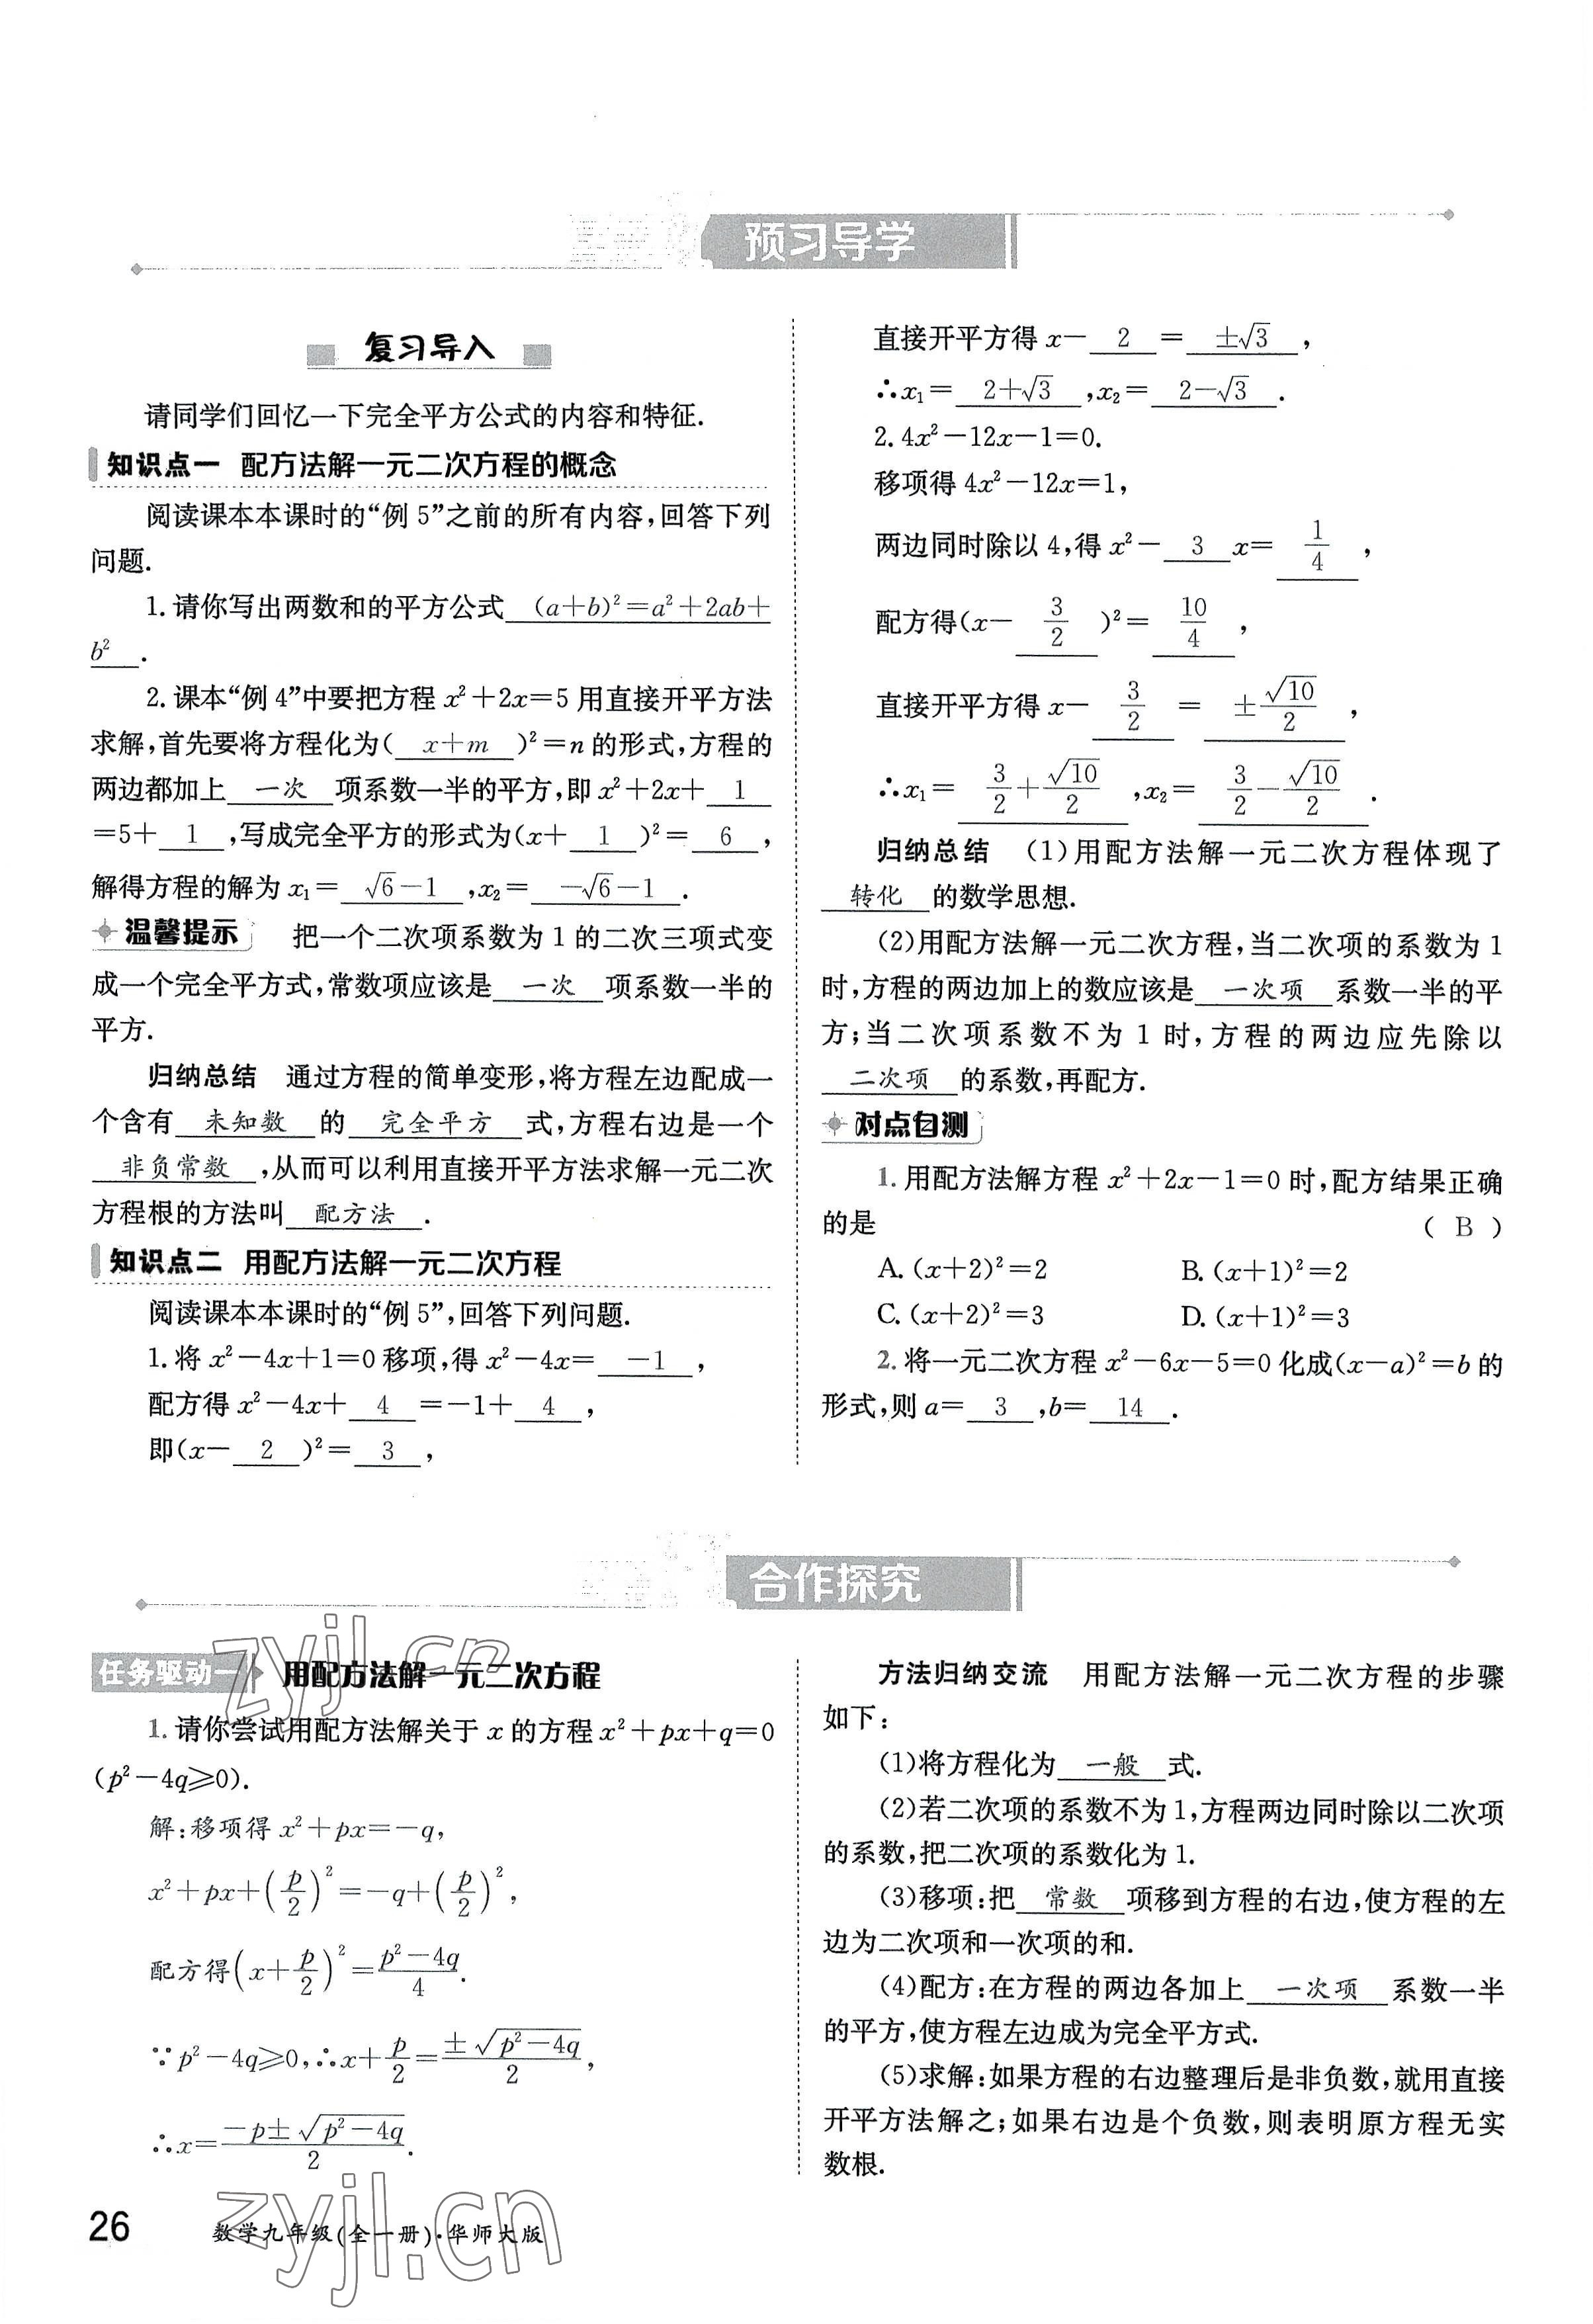 预习导学
复习导入
请同学们回忆一下完全平方公式的内容和特征.
知识点一 配方法解一元二次方程的概念
阅读课本本课时的“例 5”之前的所有内容,回答下列
问题.
1.请你写出两数和的平方公式 (a+b)²=a²+2ab+
b² .
2.课本“例 4”中要把方程 x²+2x=5 用直接开平方法
求解,首先要将方程化为( x+m )²=n 的形式,方程的
两边都加上 一次 项系数一半的平方,即 x²+2x+ 1
=5+ 1 ,写成完全平方的形式为(x+ 1 )²= 6 ,
解得方程的解为 x₁= √6-1 ,x₂= -√6-1 .
温馨提示 把一个二次项系数为 1 的二次三项式变
成一个完全平方式,常数项应该是 一次 项系数一半的
平方.
归纳总结 通过方程的简单变形,将方程左边配成一
个含有 未知数 的 完全平方 式,方程右边是一个
非负常数 ,从而可以利用直接开平方法求解一元二次
方程根的方法叫 配方法 .
知识点二 用配方法解一元二次方程
阅读课本本课时的“例 5”,回答下列问题.
1.将 x²-4x+1=0 移项,得 x²-4x= -1 ,
配方得 x²-4x+ 4 =-1+ 4 ,
即(x- 2 )²= 3 ,
直接开平方得 x- 2 = ±√3 ,
∴x₁= 2+√3 ,x₂= 2-√3 .
2.4x²-12x-1=0.
移项得 4x²-12x=1,
两边同时除以 4,得 x²- 3 x= 1/4 ,
配方得(x- 3/2 )²= 10/4 ,
直接开平方得 x- 3/2 = ±√10/2 ,
∴x₁= 3/2+√10/2 ,x₂= 3/2-√10/2 .
归纳总结 (1)用配方法解一元二次方程体现了
转化 的数学思想.
(2)用配方法解一元二次方程,当二次项的系数为 1
时,方程的两边加上的数应该是 一次项 系数一半的平
方;当二次项系数不为 1 时,方程的两边应先除以
二次项 的系数,再配方.
对点自测
1.用配方法解方程 x²+2x-1=0 时,配方结果正确
的是 ( B )
A.(x+2)²=2 B.(x+1)²=2
C.(x+2)²=3 D.(x+1)²=3
2.将一元二次方程 x²-6x-5=0 化成(x-a)²=b 的
形式,则 a= 3 ,b= 14 .
合作探究
任务驱动一 用配方法解一元二次方程
1.请你尝试用配方法解关于 x 的方程 x²+px+q=0
(p²-4q≥0).
解:移项得 x²+px=-q,
x²+px+(p/2)²=-q+(p/2)²,
配方得(x+p/2)²=(p²-4q)/4.
∵p²-4q≥0,∴x+p/2=±√(p²-4q)/2,
∴x=(-p±√(p²-4q))/2.
方法归纳交流 用配方法解一元二次方程的步骤
如下:
(1)将方程化为 一般 式.
(2)若二次项的系数不为 1,方程两边同时除以二次项
的系数,把二次项的系数化为 1.
(3)移项:把 常数 项移到方程的右边,使方程的左
边为二次项和一次项的和.
(4)配方:在方程的两边各加上 一次项 系数一半
的平方,使方程左边成为完全平方式.
(5)求解:如果方程的右边整理后是非负数,就用直接
开平方法解之;如果右边是个负数,则表明原方程无实
数根.
zyjl.cn
zyjl.cn
26 数学九年级(全一册)·华师大版